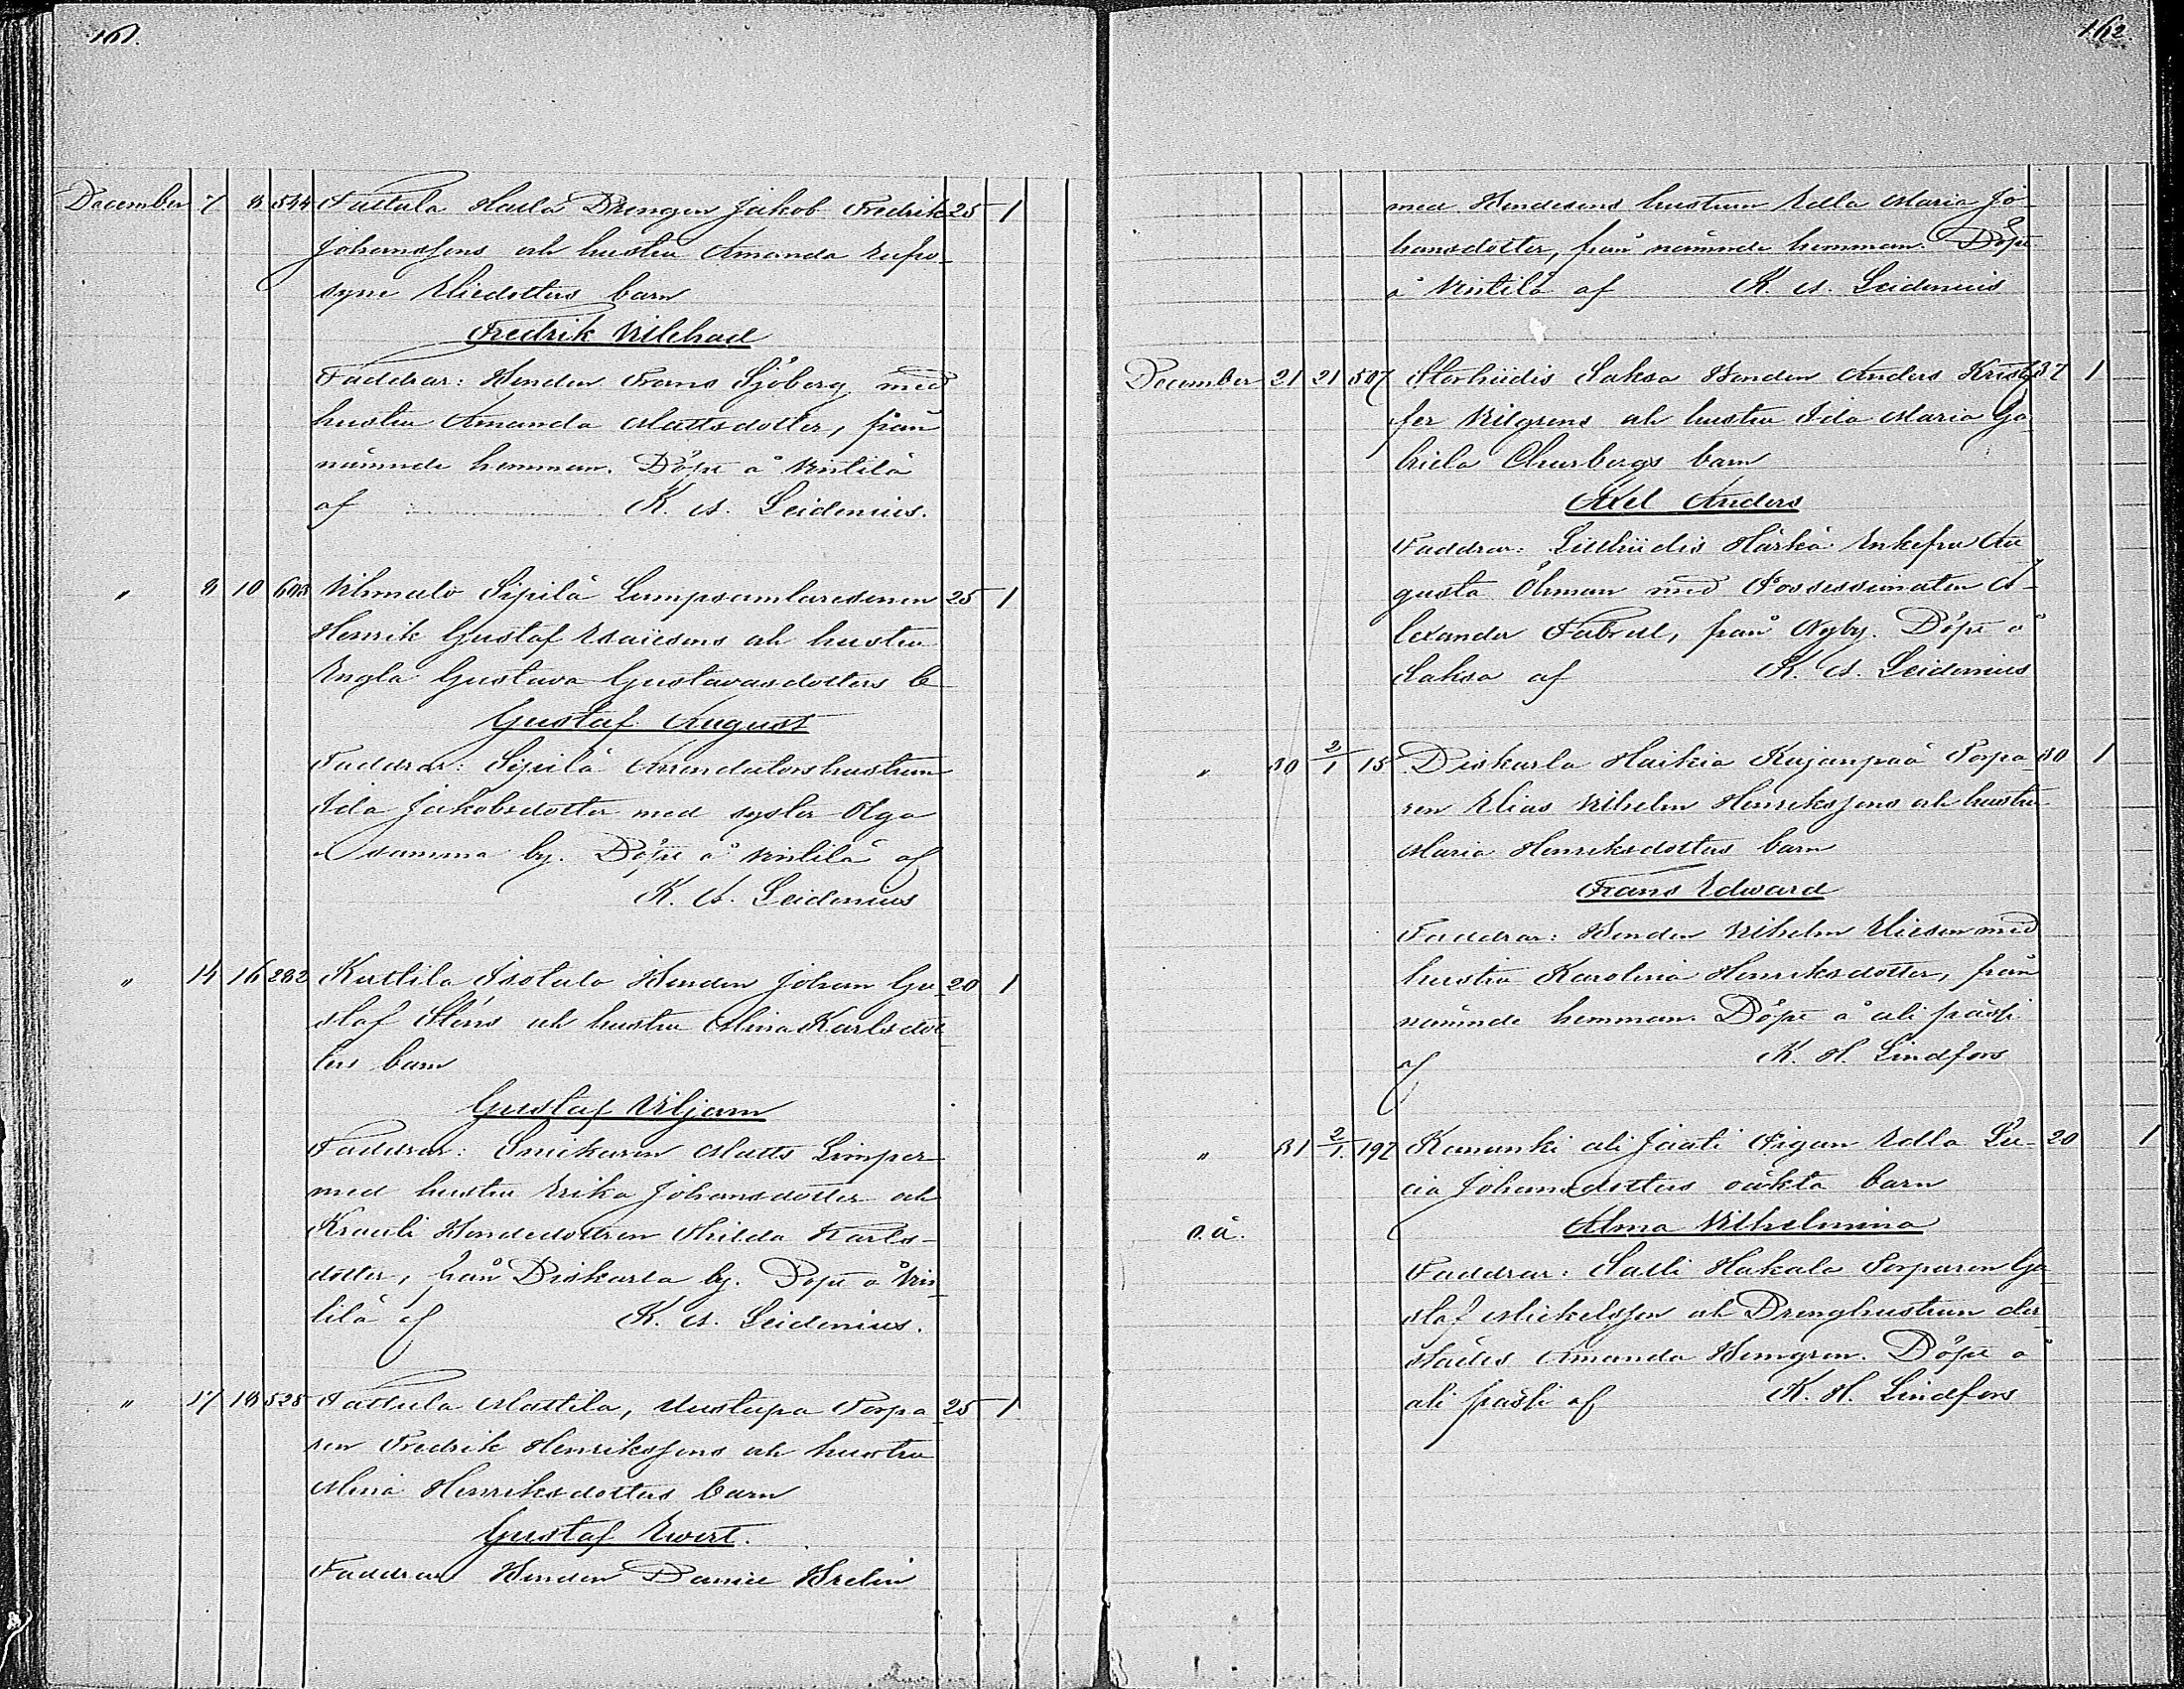 161.
December 7 8 544 Tattula Harla Drengen Jakob Fredrik 25 1
Johanssons och hustru Amanda Eufro-
syne Eliedotters barn
Fredrik Vilehad
Faddrar: Bonden Frans Sjöberg med
hustru Amanda Mattsdotter, från
nämnde hemman. Döpt å Anttila
af K. A. Leidenius.
" 8 10 603 Sipilä Lumpsamlaresonen 25 1
Henrik Gustaf Esaiesons och hustru
Engla Gustava Gustavasdotters b
Gustaf August
Faddrar: Sipilä Arrendatorshustrun
Ida Jakobsdotter med syster Olga
samma by. Döpt å Anttila af
K. A. Leidenius
" 14 16 282 Kuttila Isotalo Bonden Johan Gu- 20 1
staf Sténs och hustru Mina Karlsdot
ters barn
Gustaf Viljam
Faddrar: Snickaren Matts Limper
med hustru Erika Johansdotter och
Krauli Bondedottren Hilda Karls-
dotter, från Diskarla by. Döpt å An
tila af K. A. Leidenius.
" 17 18 525 Tattula Mattila, Uustupa Torpa 25 1
ren Fredrik Henrikssons och hustru
Mina Henriksdotters barn
Gustaf Evert.
Faddrar Bonden Daniel Brelin
162.
med Bondesons hustrun Edla Maria Jo-
hansdotter, från nämnde hemman. Döpt
å Anttila af K. A. Leidenius
December 21 21 507 Storhiidis Saksa Bonden Anders Kristo 37 1
fer Vilgrens och hustru Ida Maria Ga
briela Churbergs barn
Axel Anders
Faddrar: Lillhiidis Härkä Enkefru Au
gusta Öhman med Possessionaten A-
lexander Fabrell, från Nyby. Döpt å
Saksa af K. A. Leidenius
" 30 2/1 15 Diskarla Haikia Kujanpää Torpa 30 1
ren Elias Vilhelm Henrikssons och hustru
Maria Henriksdotters barn
Frans Edward
Faddrar: Bonden Vilhelm Elieson med
hustru Karolina Henriksdotter, från
nämnde hemman. Döpt å ali pästi
af K. H. Lindfors
" 31 2/1. 192 Kananki ali Jaati Pigan Edla Lu- 20 1
cia Johansdotters oäkta barn
o.ä. Alma Vilhelmina
Faddrar: Salli Hakala Torparen Gu
staf Mickelsson och Drenghustrun der
städes Amanda Hemgren. Döpt å
ali pästi af K. H. Lindfors